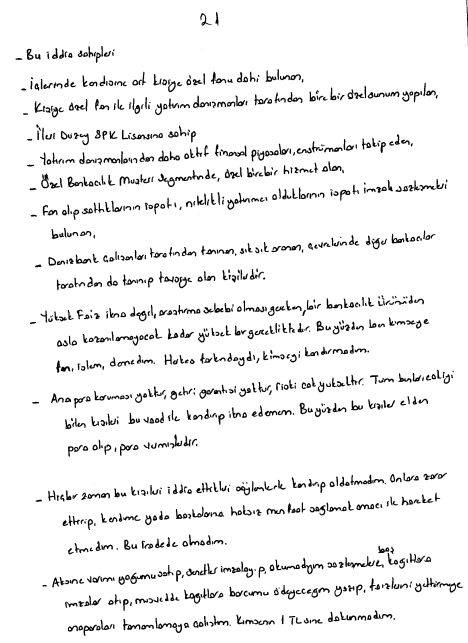 21
- Bu iddia sahipleri
- içlerinde kendisine ait kişiye özel fonu dahi bulunan,
- Kişiye özel fon ile ilgili yatırım danışmanları tarafından birebir özel sunum yapılan,
- İleri Düzey SPK Lisansına sahip
- Yatırım danışmanlarından daha aktif finansal piyasaları, enstrümanları takip eden,
- Özel Bankacılık Müşteri Segmentinde, özel birebir hizmet alan,
- Fon alıp sattıklarının ispatı, nitelikli yatırımcı olduklarının ispatı imzalı sözleşmeleri
bulunan,
- Denizbank çalışanları tarafından tanınan, sık sık aranan, çevrelerinde diğer bankacılar
tarafından da tanınıp tavsiye alan kişilerdir.
- Yüksek Faiz ikna değil, araştırma sebebi olması gereken, bir bankacılık ürününden
asla kazanılamayacak kadar yüksek bir gerçekliktedir. Bu yüzden ben kimseye
fon, işlem, demedim. Herkes farkındaydı, kimseyi kandırmadım.
- Ana para koruması yoktur, getiri garantisi yoktur, riski çok yüksektir. Tüm bunları
bilen kişileri bu vaad ile kandırıp ikna edemem. Bu yüzden bu kişiler elden
para alıp, para vermişlerdir.
- Hiçbir zaman bu kişileri iddia ettikleri söylemlerle kandırıp aldatmadım. Onlara zarar
ettirip, kendime yada başkalarına haksız menfaat sağlamak amacı ile hareket
etmedim. Bu iradede olmadım.
- Aksine varımı yoğumu satıp, senetler imzalayıp, okumadığım sözleşmelere, bazı kağıtlara
imzalar atıp, müsvedde kağıtlara borcumu ödeyeceğim yazıp, faizlerini yettirmeye
anaparaları tamamlamaya çalıştım. Kimsenin 1 TL'sine dokunmadım.